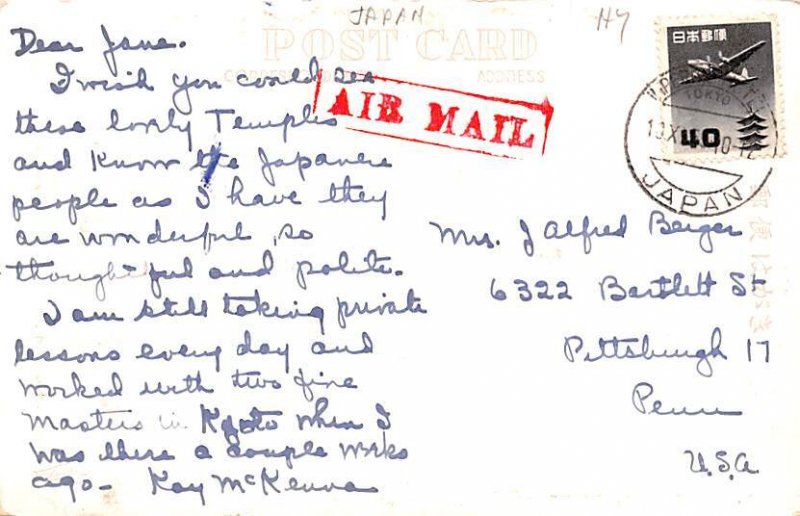 JAPAN
H4
POST CARD
CORRESPONDENCE
ADDRESS
AIR MAIL
日本郵便
40
TOKYO
JAPAN
Dear Jane.
I wish you could see
these lovely Temples
and know the Japanese
people as I have they
are wonderful, so
thoughtful and polite.
I am still taking private
lessons every day and
worked with two fine
Masters in Kyoto when I
was there a couple weeks
ago - Kay McKenna
Mrs. J Alfred Berger
6322 Bartlett St
Pittsburgh 17
Penn
U.S.A
郵便はがき